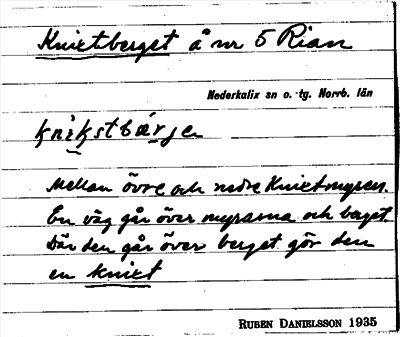 Knixtberget å nr 5 Rian
Nederkalix sn o. tg. Norrb. län
kni̬kstbærjen
Mellan övre och nedre Knixtmyren.
En väg går över myrarna och berget.
Där den går över berget gör den
en knixt
RUBEN DANIELSSON 1935